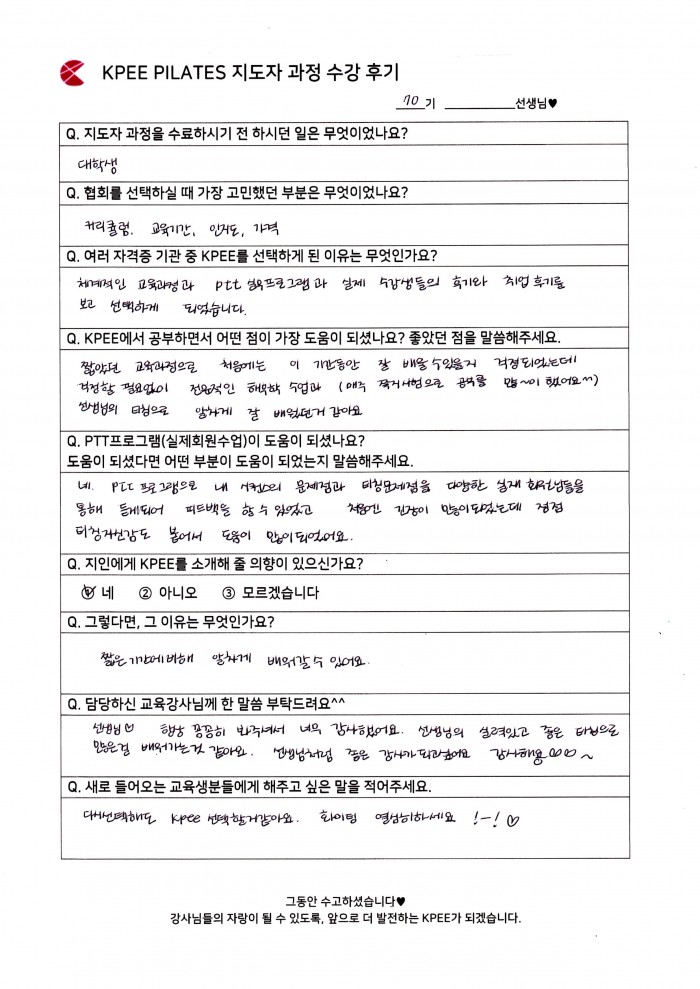 KPEE PILATES 지도자 과정 수강 후기
70 기 선생님♥
Q. 지도자 과정을 수료하시기 전 하시던 일은 무엇이었나요?
대학생
Q. 협회를 선택하실 때 가장 고민했던 부분은 무엇이었나요?
커리큘럼, 교육기간, 인지도, 가격
Q. 여러 자격증 기관 중 KPEE를 선택하게 된 이유는 무엇인가요?
체계적인 교육과정과 ptt 실육프로그램과 실제 수강생들의 후기와 취업후기를
보고 선택하게 되었습니다.
Q. KPEE에서 공부하면서 어떤 점이 가장 도움이 되셨나요? 좋았던 점을 말씀해주세요.
짧았던 교육과정으로 처음에는 이 기간동안 잘 배울수있을지 걱정되었는데
걱정할 필요없이 전문적인 해부학 수업과 (매주 쪽지시험으로 공부를 많~이 했어요^^)
선생님의 티칭으로 알차게 잘 배웠던거 같아요
Q. PTT프로그램(실제회원수업)이 도움이 되셨나요?
도움이 되셨다면 어떤 부분이 도움이 되었는지 말씀해주세요.
네. Ptt 프로그램으로 내 시퀀스의 문제점과 티칭문제점을 다양한 실제 회원님들을
통해 듣게되어 피드백을 할 수 있었고 처음엔 긴장이 많이되었는데 점점
티칭자신감도 붙어서 도움이 많이되었어요.
Q. 지인에게 KPEE를 소개해 줄 의향이 있으신가요?
① 네 ② 아니오 ③ 모르겠습니다
Q. 그렇다면, 그 이유는 무엇인가요?
짧은기간에비해 알차게 배워갈수 있어요.
Q. 담당하신 교육강사님께 한 말씀 부탁드려요^^
선생님♡ 항상 꼼꼼히 봐주셔서 너무 감사했어요. 선생님의 실력있고 좋은 티칭으로
많은걸 배워가는것 같아요. 선생님처럼 좋은 강사가되고싶어요 감사해용♡♡~
Q. 새로 들어오는 교육생분들에게 해주고 싶은 말을 적어주세요.
다시선택해도 kpee 선택할거같아요. 화이팅 열심히하세요 !-! ♡
그동안 수고하셨습니다♥
강사님들의 자랑이 될 수 있도록, 앞으로 더 발전하는 KPEE가 되겠습니다.